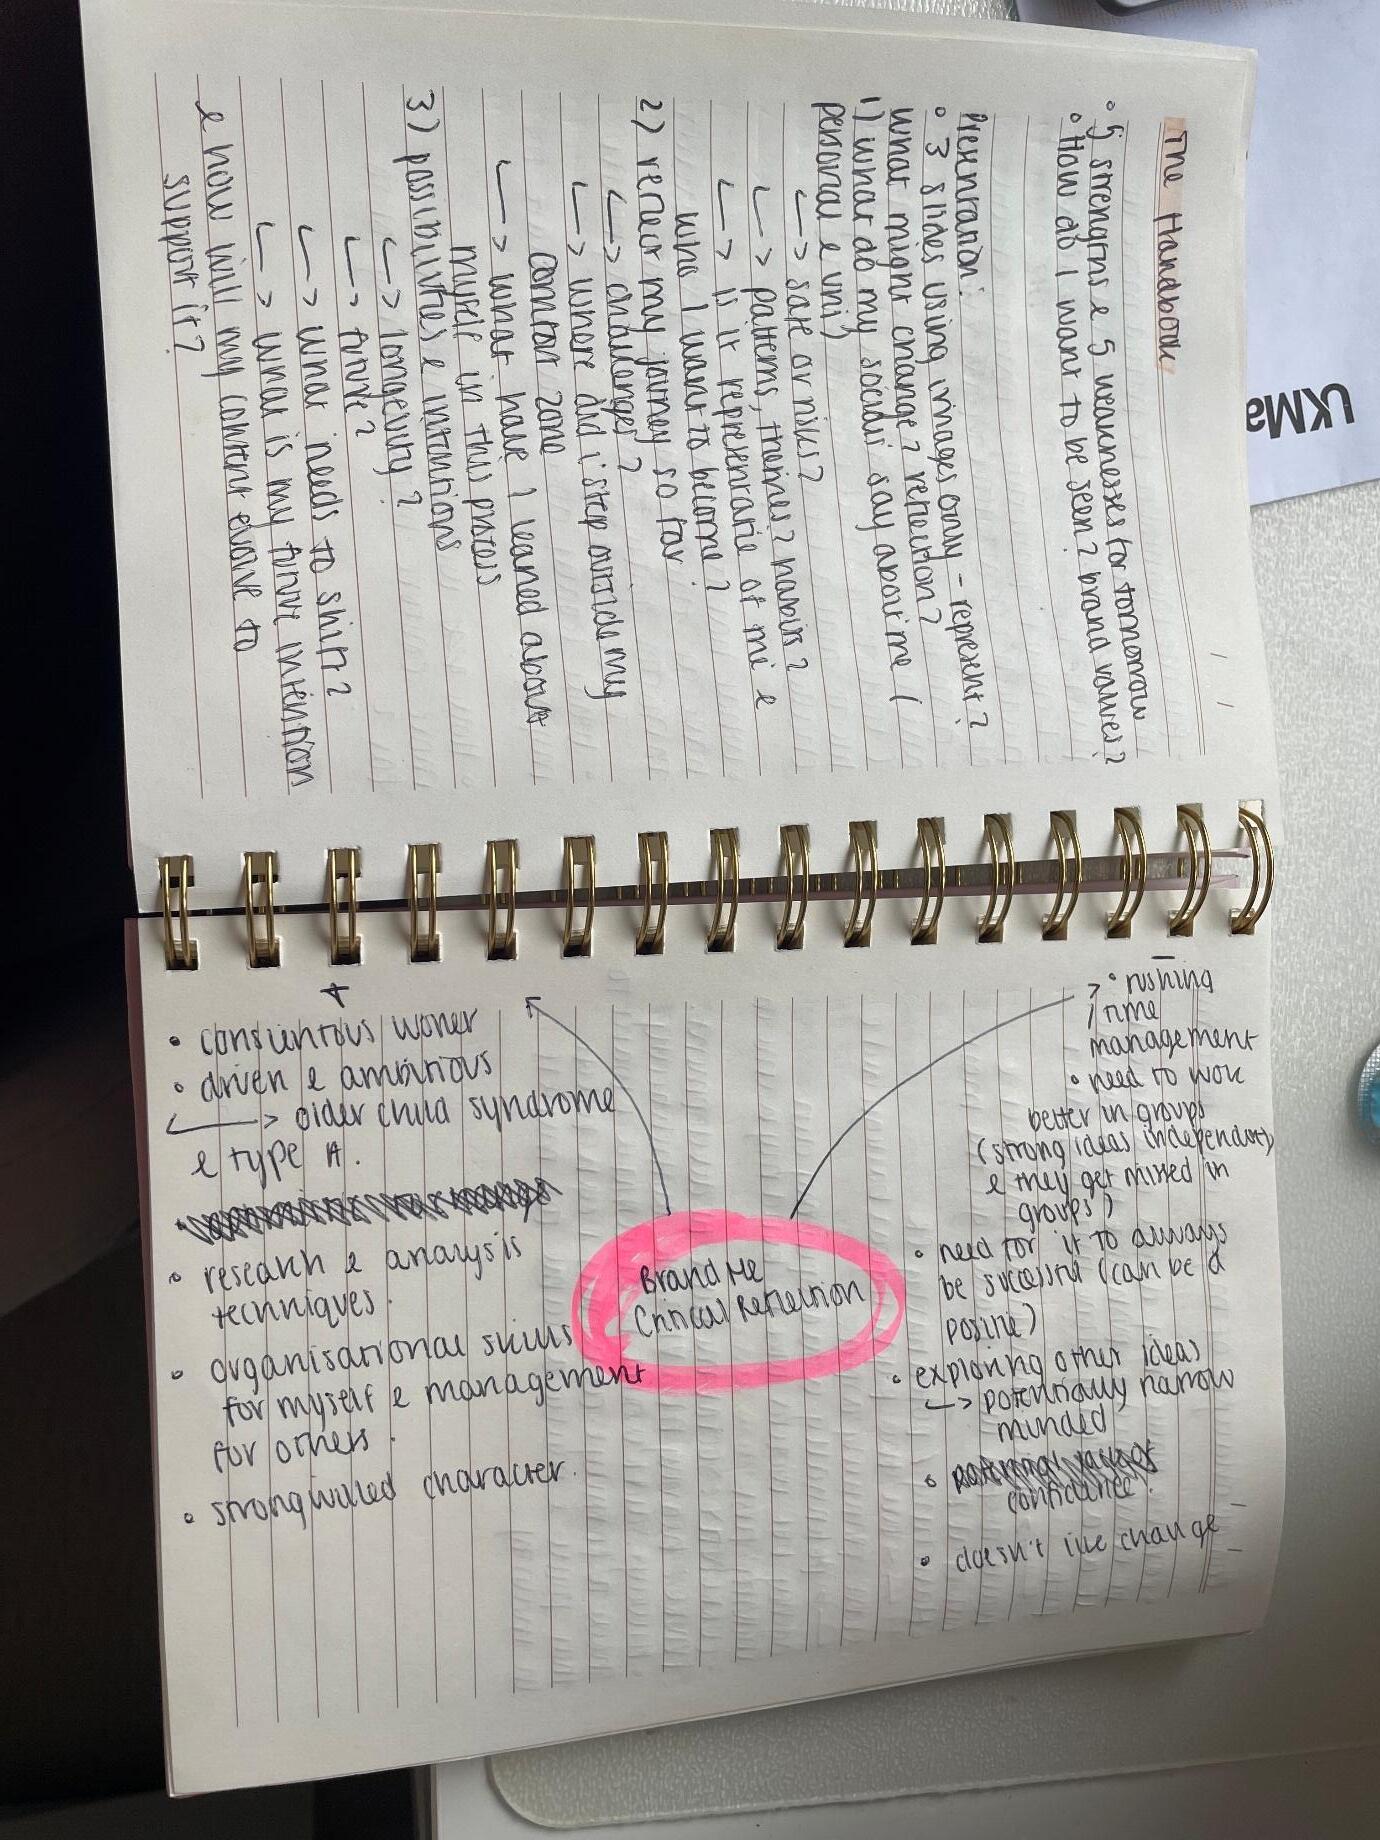 The Handbook
• 5 strengths & 5 weaknesses for tomorrow
• How do I want to be seen? brand values?
Presentation:
• 3 slides using images only - represent?
what might change? reflection?
1) what do my socials say about me (
personal & uni)
↳ safe or risk?
↳ patterns, themes? habits?
↳ is it representative of me &
who I want to become?
2) reflect my journey so far
↳ challenges?
↳ where did i step outside my
comfort zone
↳ what have I learned about
myself in this process
3) possibilities & intentions
↳ longevity?
↳ future?
↳ what needs to shift?
↳ what is my future intention
& how will my content evolve to
support it?
+
• conscientous worker
• driven & ambitious
↳ older child syndrome
& type A.
• research & analysis
techniques.
• organisational skills
for myself & management
for others.
• strongwilled character.
Brand Me
Critical Reflection
-
• rushing
/time
management
• need to work
better in groups
(strong ideas independently
& they get missed in
groups)
• need for it to always
be successful (can be a
positive)
• exploring other ideas
↳ potentially narrow
minded
• confidence?
• doesn't like change
UKMa